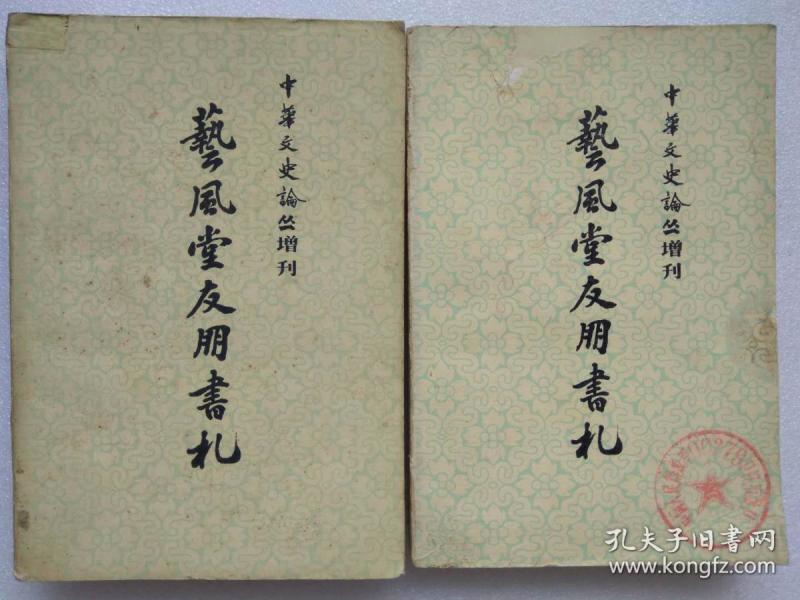 中華文史論丛增刊
藝風堂友朋書札
中華文史論丛增刊
藝風堂友朋書札
孔夫子旧書网
www.kongfz.com